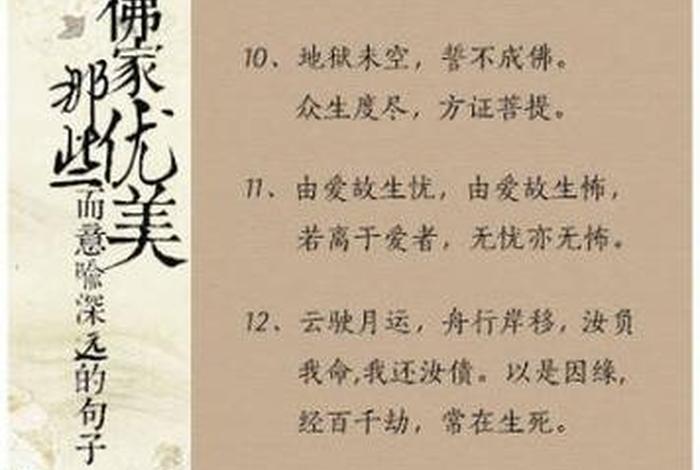 佛家
那些优美
而意喻深远的句子
10、地狱未空，誓不成佛。
众生度尽，方证菩提。
11、由爱故生忧，由爱故生怖，
若离于爱者，无忧亦无怖。
12、云驶月运，舟行岸移，汝负
我命,我还汝债。以是因缘,
经百千劫，常在生死。